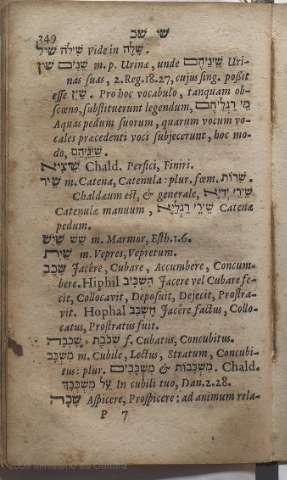 שי שכ
249
שִׁיל שִׁילֹה vide in שָׁלָה.
שֵׁין שֵׁינִים m. p. Urinæ, unde שֵׁינֵיהֶם Uri-
nas suas, 2. Reg. 18. 27, cujus sing. possit
esse שֵׁין. Pro hoc vocabulo, tanquam ob-
scœno, substituerunt legendum, מֵי רַגְלֵיהֶם
Aquas pedum suorum, quarum vocum vo-
cales præcedenti voci subjecerunt, hoc mo-
do, שֵׁינֵיהֶם
שֵׁיצִיא Chald. Perfici, Finiri.
שֵׁיר m. Catena, Catenula: plur. fœm. שֵׁרוֹת.
Chaldæum est, & generale, שֵׁירֵי יְדַיָּא
Catenulæ manuum, שֵׁירֵי רַגְלַיָּא Catenæ
pedum.
שִׁישׁ שֵׁשׁ m. Marmor, Esth. 1. 6.
שַׁיִת m. Vepres, Vepretum.
שָׁכַב Jacere, Cubare, Accumbere, Concum-
bere. Hiphil הִשְׁכִּיב Jacere vel Cubare fe-
cit, Collocavit, Deposuit, Dejecit, Prostra-
vit. Hophal הֻשְׁכַּב Jacere factus, Collo-
catus, Prostratus fuit.
שְׁכֹבֶת, שִׁכְבָה f. Cubatus, Concubitus.
מִשְׁכָּב m. Cubile, Lectus, Stratum, Concubi-
tus: plur. מִשְׁכָּבִים & מִשְׁכָּבוֹת. Chald.
עַל מִשְׁכְּבָךְ In cubili tuo, Dan. 2. 28.
שָׂכָה Aspicere, Prospicere: ad animum rela-
P 7